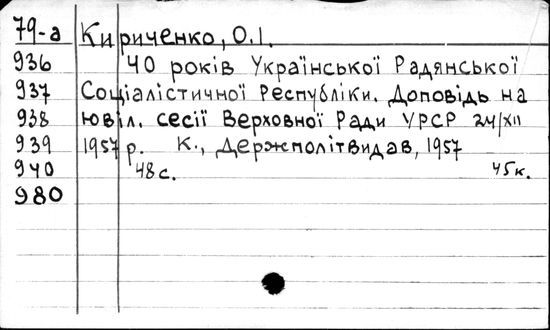 79-а Кириченко, О.І.
936 40 років Української Радянської
937 Соціалістичної Республіки. Доповідь на
938 ювіл. сесії Верховної Ради УРСР 24/XII
939 1957 р. К., Держполітвидав, 1957
940 48 с. 45 к.
980